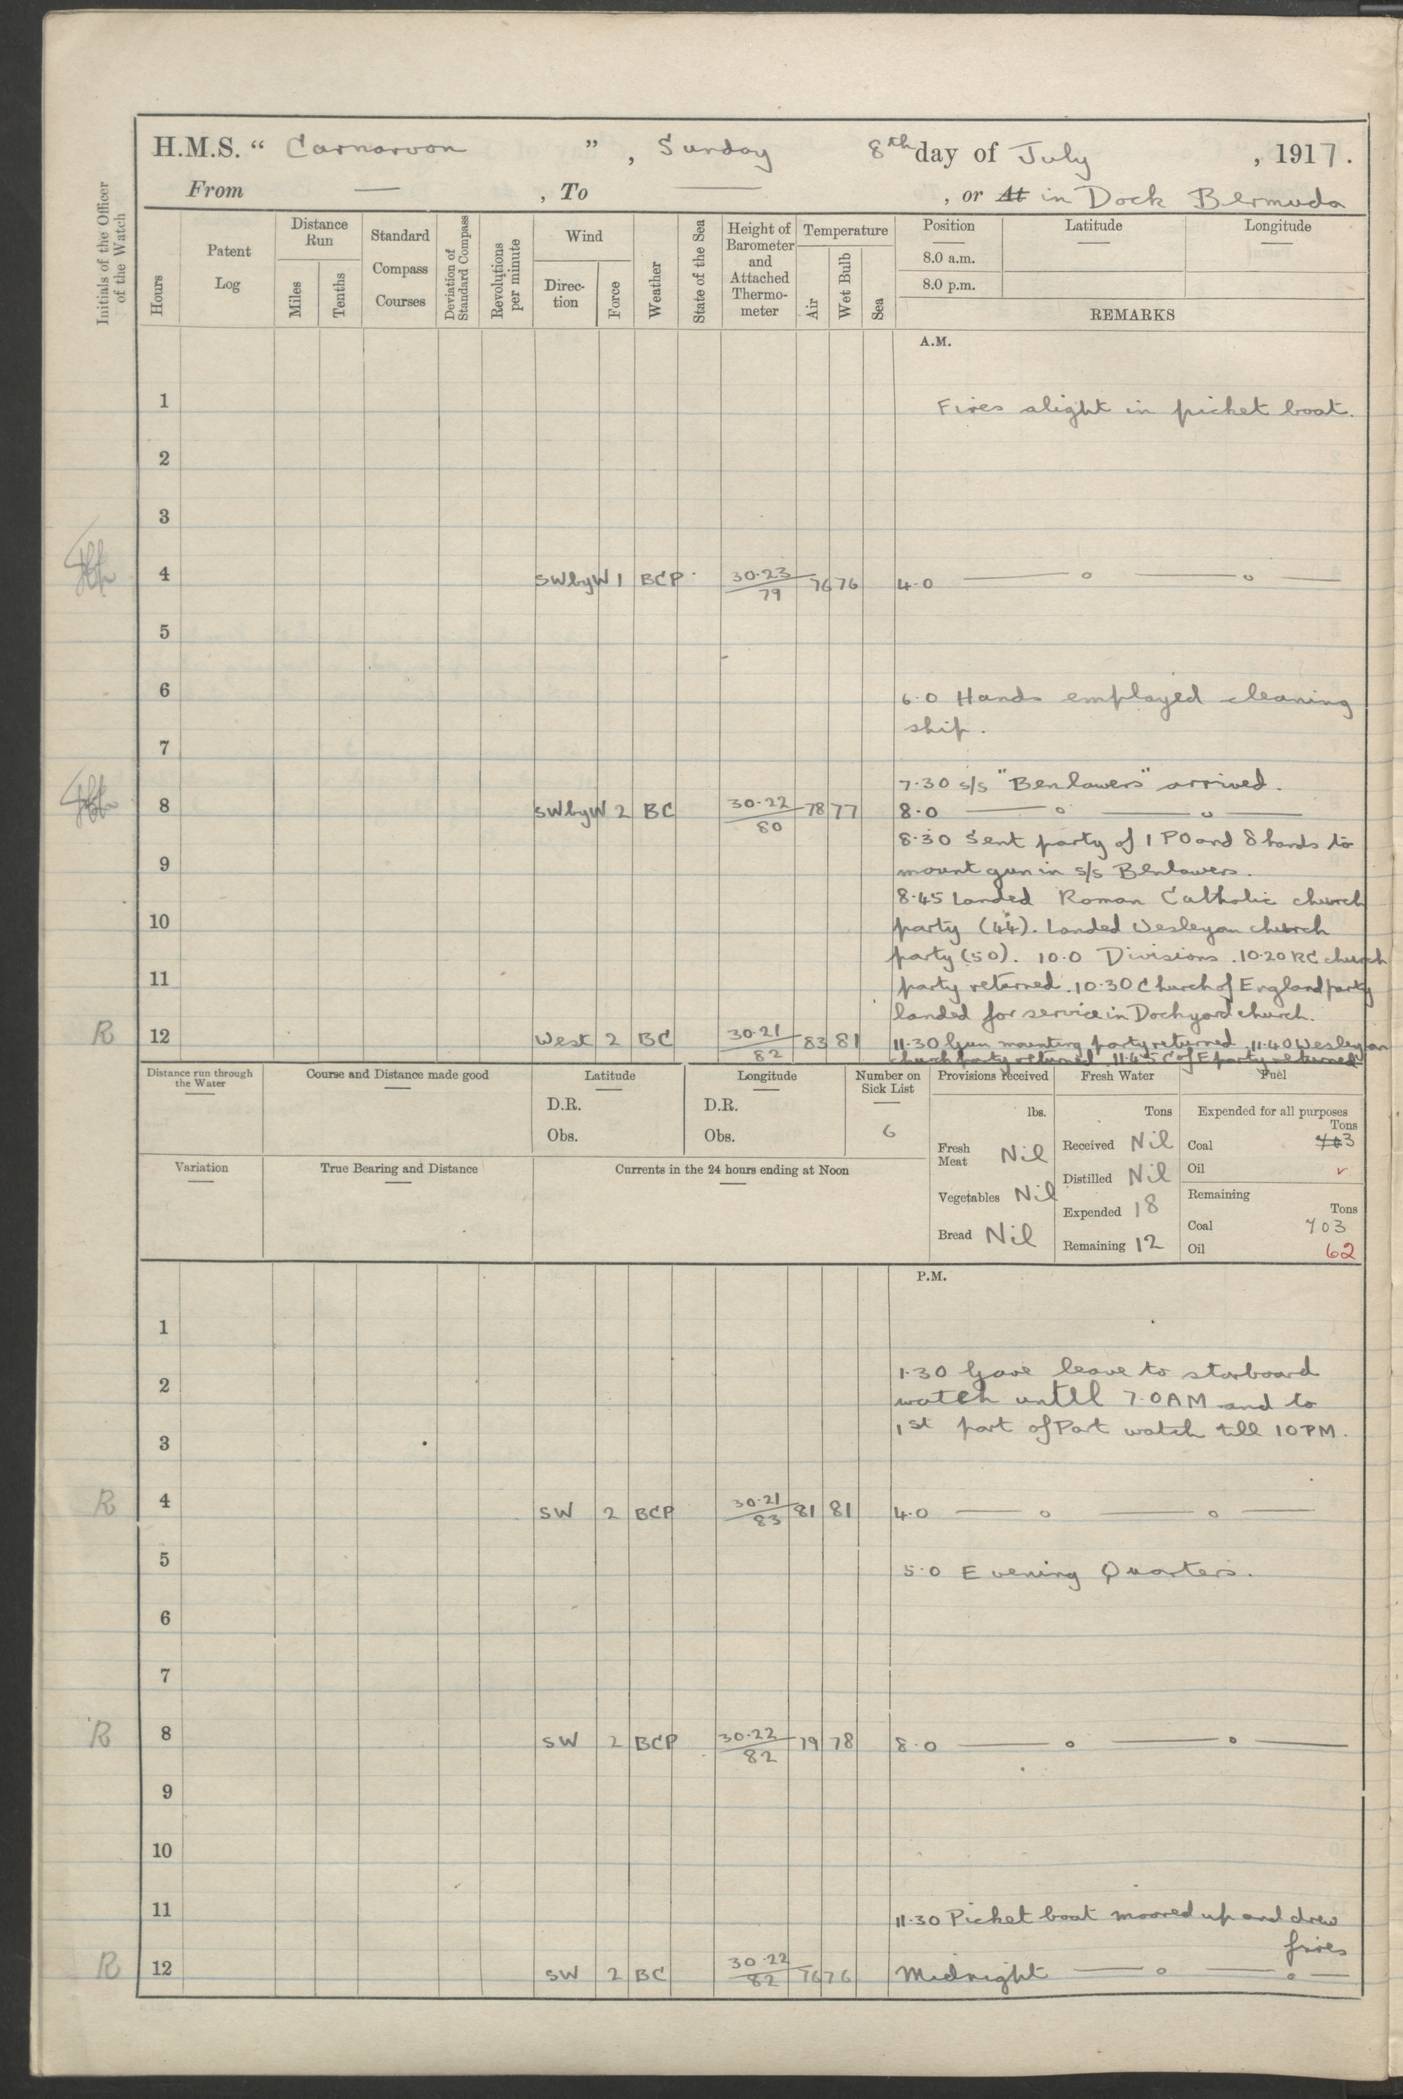 H.M.S. “ Carnarvon ” , Sunday 8th day of July , 1917.
From — , To — , or At in Dock Bermuda
Initials of the Officer of the Watch
Hours
Patent Log
Distance Run
Miles
Tenths
Standard Compass Courses
Deviation of Standard Compass
Revolutions per minute
Wind
Direction
Force
Weather
State of the Sea
Height of Barometer and Attached Thermometer
Temperature
Air
Wet Bulb
Sea
Position Latitude Longitude
8.0 a.m.
8.0 p.m.
REMARKS
A.M.
1 Fires alight in picket boat.
2
3
4 SWbyW 1 BCP 30.23/79 76 76 4.0 — o — o —
5
6 6.0 Hands employed cleaning
ship.
7
7.30 s/s "Benlawers" arrived.
8 SWbyW 2 BC 30.22/80 78 77 8.0 — o — o —
8.30 Sent party of 1 PO and 8 hands to
9 mount gun in s/s Benlawers.
8.45 Landed Roman Catholic church
10 party (44). Landed Wesleyan church
party (50). 10.0 Divisions. 10.20 RC church
11 party returned. 10.30 Church of England party
landed for service in Dockyard church.
R 12 West 2 BC 30.21/82 83 81 11.30 Gun mounting party returned. 11.40 Wesleyan
church party returned. 11.45 C of E party returned
Distance run through the Water
Course and Distance made good
Latitude
D.R.
Obs.
Longitude
D.R.
Obs.
Number on Sick List
6
Provisions received
lbs.
Fresh Meat Nil
Vegetables Nil
Bread Nil
Fresh Water
Tons
Received Nil
Distilled Nil
Expended 18
Remaining 12
Fuel
Expended for all purposes
Tons
Coal 3
Oil
Remaining
Tons
Coal 703
Oil 62
Variation
True Bearing and Distance
Currents in the 24 hours ending at Noon
P.M.
1
1.30 Gave leave to starboard
2 watch until 7.0AM and to
3 1st part of Port watch till 10PM.
R 4 SW 2 BCP 30.21/83 81 81 4.0 — o — o —
5 5.0 Evening Quarters.
6
7
R 8 SW 2 BCP 30.22/82 79 78 8.0 — o — o —
9
10
11 11.30 Picket boat moored up and drew
fires
R 12 SW 2 BC 30.22/82 76 76 Midnight — o — o —